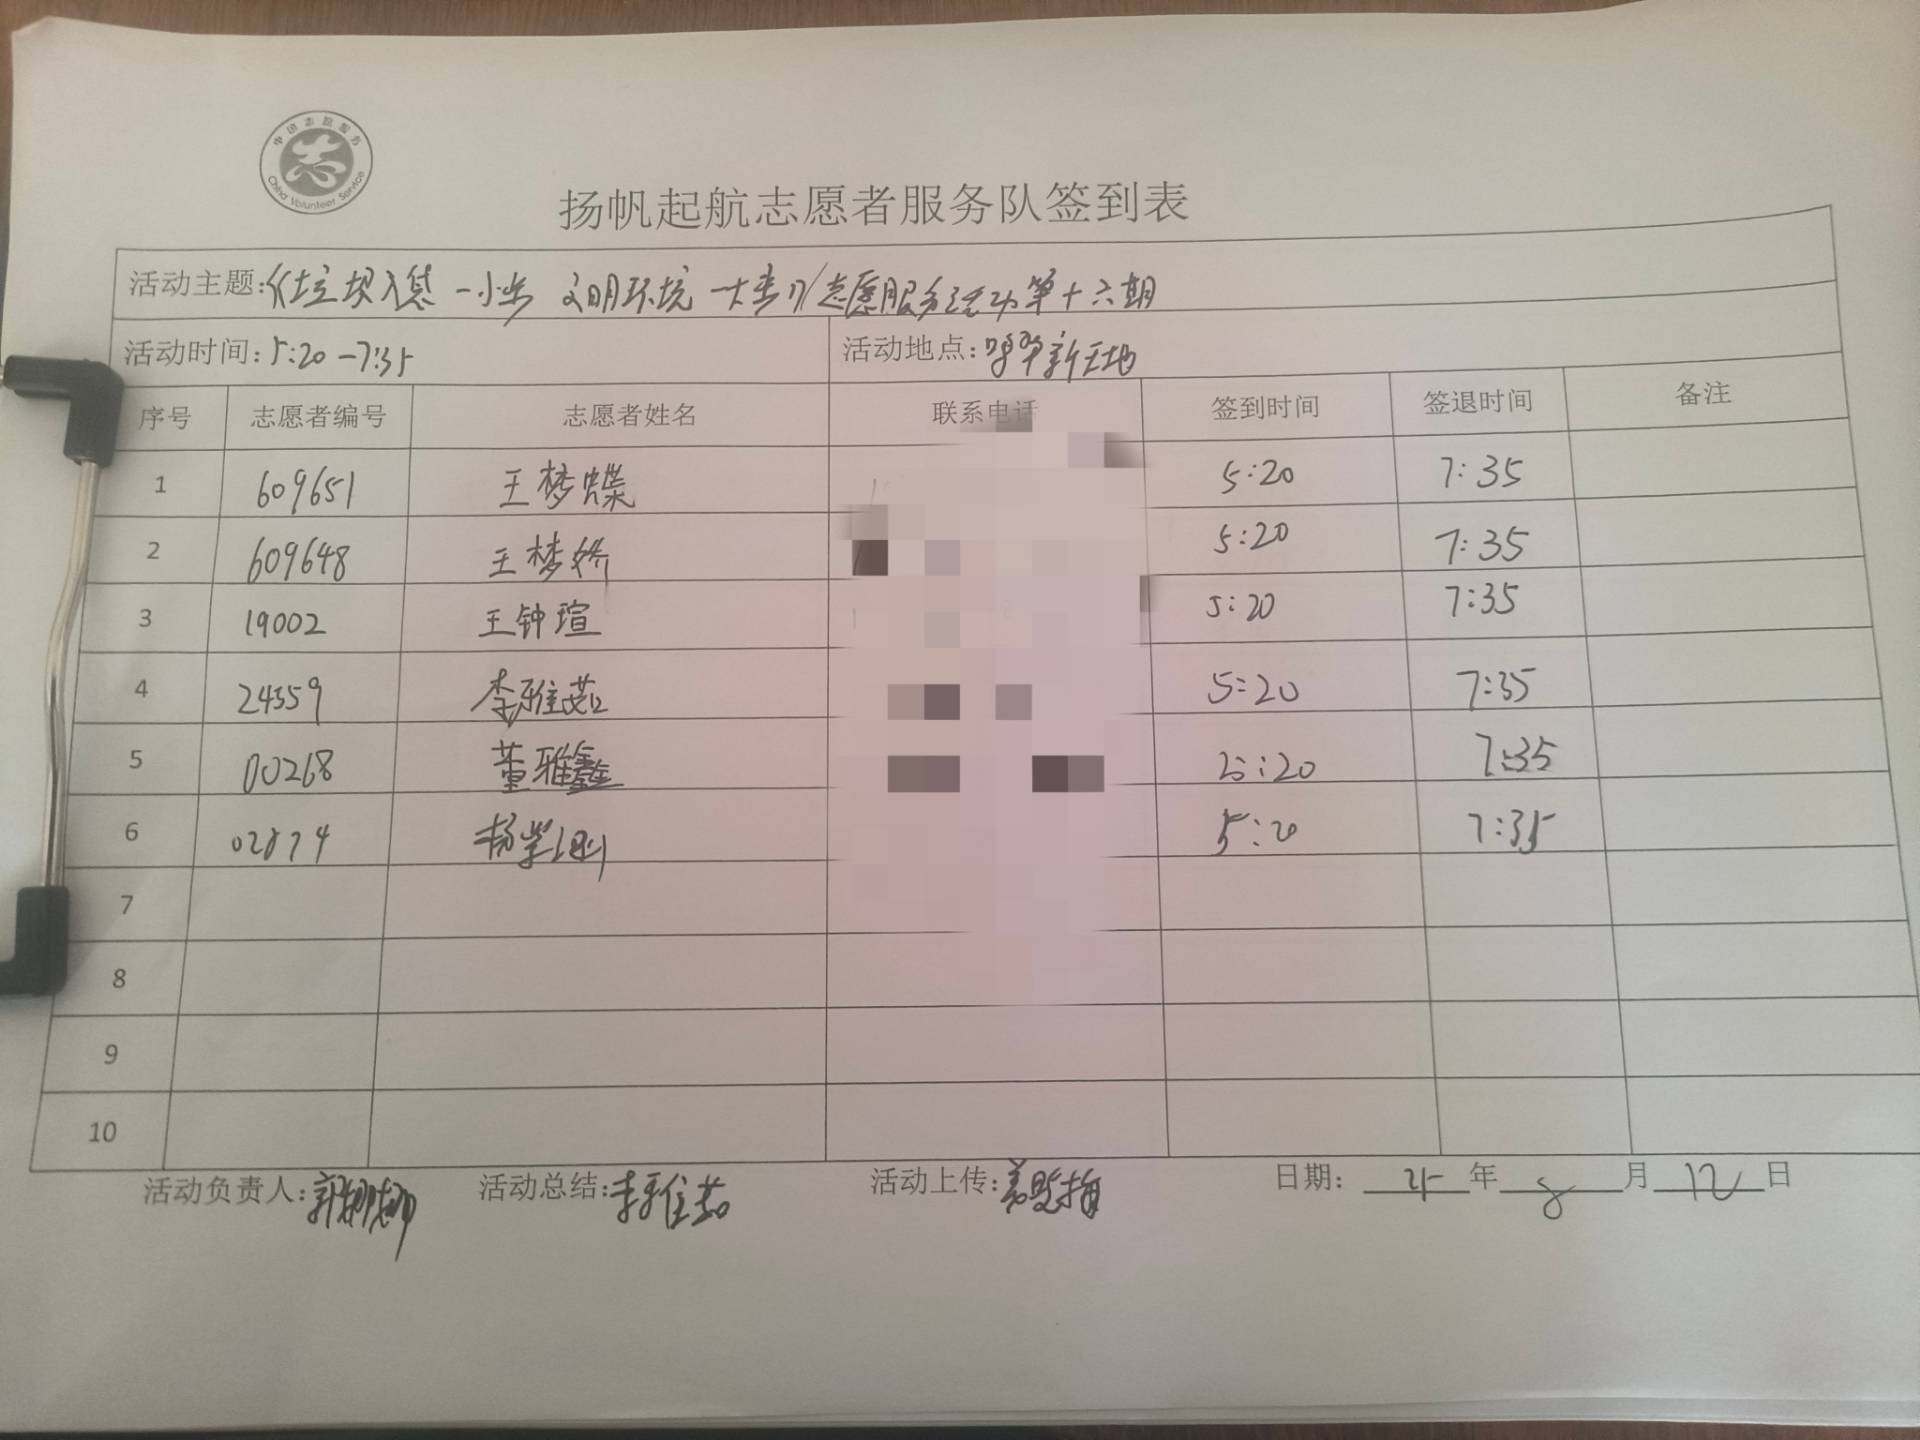 中国志愿服务
China Volunteer Service
扬帆起航志愿者服务队签到表
活动主题:《垃圾入袋一小步 文明环境一大步》志愿服务活动第十六期
活动时间:5:20-7:35 活动地点:新天地
序号 志愿者编号 志愿者姓名 联系电话 签到时间 签退时间 备注
1 609651 王梦蝶 5:20 7:35
2 609648 王梦娇 5:20 7:35
3 19002 王钟瑄 5:20 7:35
4 24359 李雅茹 5:20 7:35
5 00268 董雅鑫 5:20 7:35
6 02874 杨 5:20 7:35
7
8
9
10
活动负责人:郭娜娜 活动总结:李雅茹 活动上传: 日期: 25年8月12日